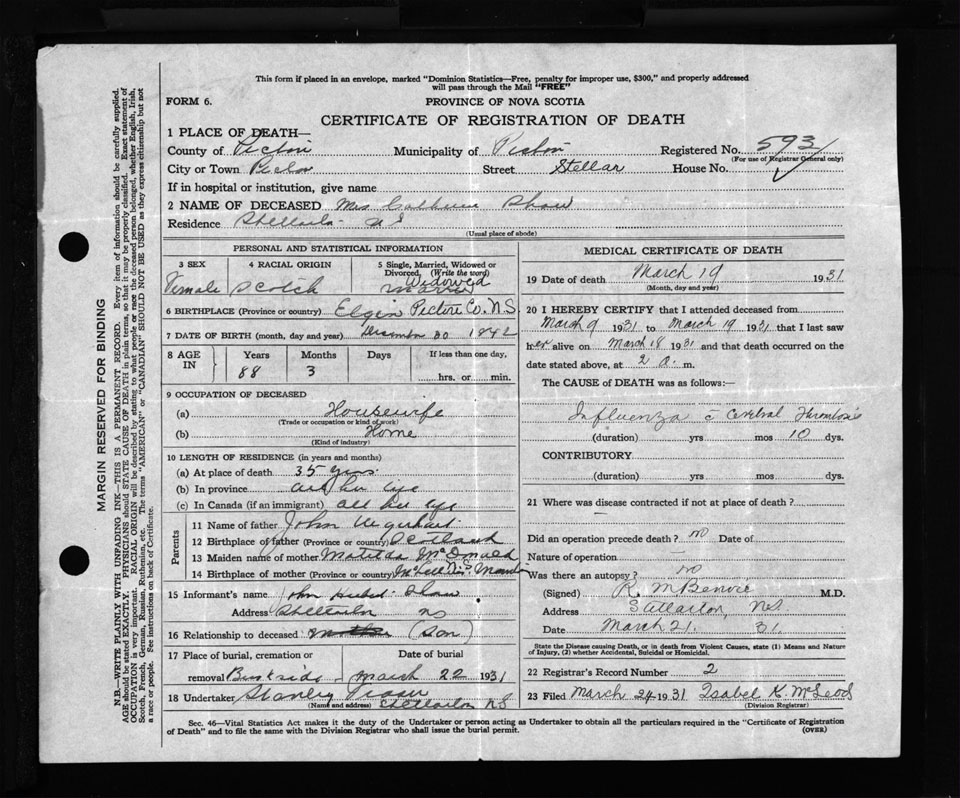 This form if placed in an envelope, marked "Dominion Statistics—Free, penalty for improper use, $300," and properly addressed
will pass through the Mail "FREE"
FORM 6.
PROVINCE OF NOVA SCOTIA
CERTIFICATE OF REGISTRATION OF DEATH
1 PLACE OF DEATH—
County of Pictou Municipality of Pictou Registered No. 593
(For use of Registrar General only)
City or Town Pictou Street Stellar House No.
If in hospital or institution, give name
2 NAME OF DECEASED Mrs Shaw
Residence Stellarton NS
(Usual place of abode)
PERSONAL AND STATISTICAL INFORMATION
3 SEX 4 RACIAL ORIGIN 5 Single, Married, Widowed or Divorced. (Write the word)
Female Scotch Widowed
6 BIRTHPLACE (Province or country) Elgin Pictou Co. N.S
7 DATE OF BIRTH (month, day and year) December 30 1842
8 AGE IN Years Months Days If less than one day,
88 3 hrs. or min.
9 OCCUPATION OF DECEASED
(a) Housewife
(Trade or occupation or kind of work)
(b) Home
(Kind of industry)
10 LENGTH OF RESIDENCE (in years and months)
(a) At place of death 35 yrs.
(b) In province all her life
(c) In Canada (if an immigrant) all her life
Parents
11 Name of father John
12 Birthplace of father (Province or country) Scotland
13 Maiden name of mother Matilda McDonald
14 Birthplace of mother (Province or country)
15 Informant's name John Shaw
Address Stellarton NS
16 Relationship to deceased (Son)
17 Place of burial, cremation or removal Date of burial
March 22 1931
18 Undertaker Stanley Fraser
(Name and address) Stellarton NS
MEDICAL CERTIFICATE OF DEATH
19 Date of death March 19 1931
(Month, day and year)
20 I HEREBY CERTIFY that I attended deceased from
March 9 1931 to March 19 1931 that I last saw
her alive on March 18 1931 and that death occurred on the
date stated above, at 2 a. m.
The CAUSE of DEATH was as follows:—
Influenza c Cerebral Thrombosis
(duration) yrs mos 10 dys.
CONTRIBUTORY
(duration) yrs. mos dys.
21 Where was disease contracted if not at place of death?
Did an operation precede death? no Date of
Nature of operation
Was there an autopsy? no
(Signed) R. M Benvie M.D.
Address Stellarton, N.S.
Date March 21. 31.
State the Disease causing Death, or in death from Violent Causes, state (1) Means and Nature of Injury, (2) whether Accidental, Suicidal or Homicidal.
22 Registrar's Record Number 2
23 Filed March 24 1931 Isabel K. McLeod
(Division Registrar)
Sec. 46—Vital Statistics Act makes it the duty of the Undertaker or person acting as Undertaker to obtain all the particulars required in the "Certificate of Registration
of Death" and to file the same with the Division Registrar who shall issue the burial permit.
(OVER)
MARGIN RESERVED FOR BINDING
N.B.—WRITE PLAINLY WITH UNFADING INK—THIS IS A PERMANENT RECORD. Every item of information should be carefully supplied.
AGE should be stated EXACTLY. PHYSICIANS should STATE CAUSE OF DEATH in plain terms, so that it may be properly classified. Exact statement of
OCCUPATION is very important. RACIAL ORIGIN will be described by stating to what people or race the deceased person belonged, whether English, Irish,
Scotch, French, German, Russian, Ruthenian, etc. The terms "AMERICAN" or "CANADIAN" SHOULD NOT BE USED as they express citizenship but not
a race or people. See instructions on back of Certificate.